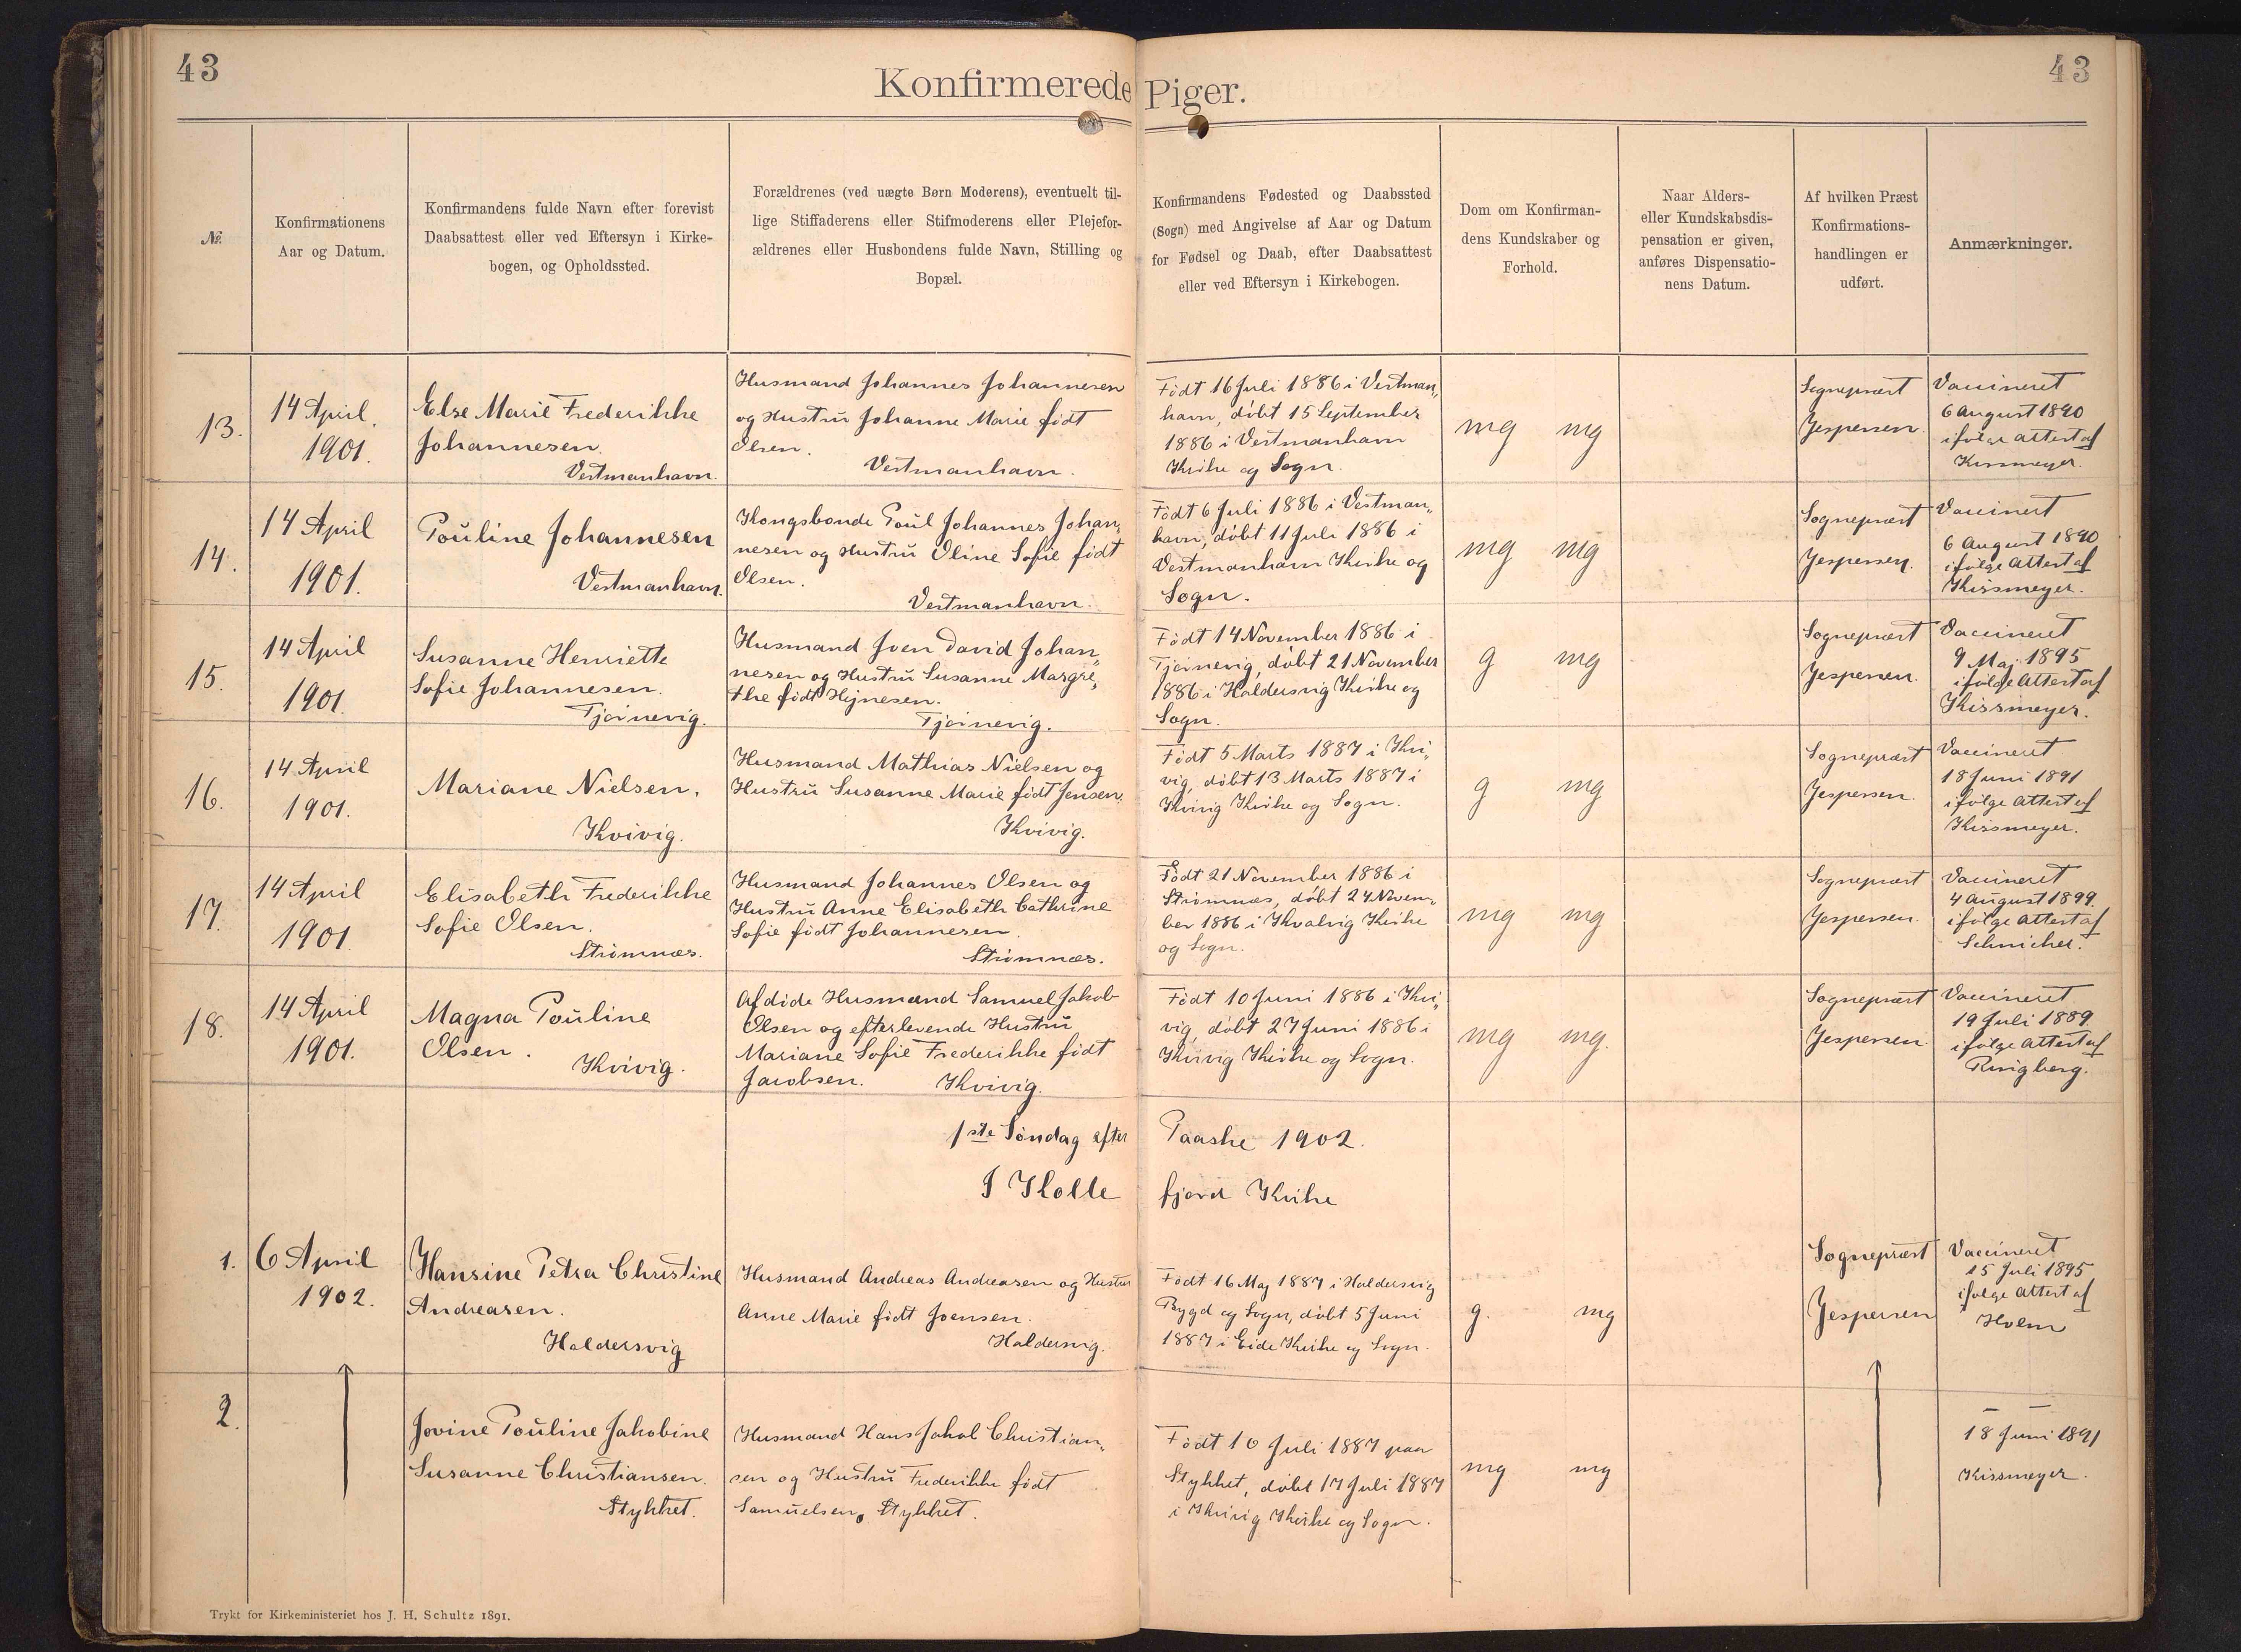 43
43
Konfirmerede Piger.
No.
Konfirmationens
Aar og Datum.
Konfirmandens fulde Navn efter forevist
Daabsattest eller ved Eftersyn i Kirke-
bogen, og Opholdssted.
Forældrenes (ved uægte Børn Moderens), eventuelt til-
lige Stiffaderens eller Stifmoderens eller Plejefor-
ældrenes eller Husbondens fulde Navn, Stilling og
Bopæl.
Konfirmandens Fødested og Daabssted
(Sogn) med Angivelse af Aar og Datum
for Fødsel og Daab, efter Daabsattest
eller ved Eftersyn i Kirkebogen.
Dom om Konfirman-
dens Kundskaber og
Forhold.
Naar Alders-
eller Kundskabsdis-
pensation er given,
anføres Dispensatio-
nens Datum.
Af hvilken Præst
Konfirmations-
handlingen er
udført.
Anmærkninger.
13.
14 April.
1901.
Else Marie Frederikke
Johannesen.
Vestmanhavn.
Husmand Johannes Johannesen
og Hustru Johanne Marie født
Olsen.
Vestmanhavn.
Født 16 Juli 1886 i Vestman„
havn, döbt 15 September
1886 i Vestmanhavn
Kirke og Sogn.
mg mg
Sognepræst
Jespersen.
Vaccineret
6 August 1890
ifölge Attest af
Kissmeyer.
14.
14 April
1901.
Pouline Johannesen
Vestmanhavn.
Kongsbonde Poul Johannes Johan„
nesen og Hustru Oline Sofie født
Olsen.
Vestmanhavn.
Födt 6 Juli 1886 i Vestman„
havn, döbt 11 Juli 1886 i
Vestmanhavn Kirke og
Sogn.
mg mg
Sognepræst
Jespersen.
Vaccineret
6 August 1890
ifölge Attest af
Kissmeyer.
15.
14 April
1901.
Susanne Henriette
Sofie Johannesen.
Tjörnevig.
Husmand Joen David Johan„
nesen og Hustru Susanne Margre„
the født Hejnesen.
Tjörnevig.
Födt 14 November 1886 i
Tjörnevig, döbt 21 November
1886 i Haldersvig Kirke og
Sogn.
g mg
Sognepræst
Jespersen.
Vaccineret
9 Maj 1895
ifölge Attest af
Kissmeyer.
16.
14 April
1901.
Mariane Nielsen.
Kvivig.
Husmand Mathias Nielsen og
Hustru Susanne Marie født Jensen.
Kvivig.
Födt 5 Marts 1887 i Kvi„
vig, döbt 13 Marts 1887 i
Kvivig Kirke og Sogn.
g mg
Sognepræst
Jespersen.
Vaccineret
18 Juni 1891
ifölge Attest af
Kissmeyer.
17.
14 April
1901
Elisabeth Frederikke
Sofie Olsen.
Strömnæs.
Husmand Johannes Olsen og
Hustru Anne Elisabeth Cathrine
Sofie født Johannesen.
Strömnæs.
Födt 21 November 1886 i
Strömnæs, döbt 24 Novem„
ber 1886 i Kvalvig Kirke
og Sogn.
mg mg
Sognepræst
Jespersen.
Vaccineret
4 August 1899.
ifölge Attest af
18.
14 April
1901.
Magna Pouline
Olsen.
Kvivig.
Afdöde Husmand Samuel Jakob
Olsen og efterlevende Hustru
Mariane Sofie Frederikke født
Jacobsen.
Kvivig.
Födt 10 Juni 1886 i Kvi„
vig, döbt 27 Juni 1886 i
Kvivig Kirke og Sogn.
mg mg.
Sognepræst
Jespersen
Vaccineret
19 Juli 1889
ifölge Attest af
Ringberg.
1ste Söndag efter Paaske 1902.
I Kollefjord Kirke
1.
6 April
1902.
Hansine Petra Christine
Andreasen.
Haldersvig
Husmand Andreas Andreasen og Hustru
Anne Marie født Joensen.
Haldersvig.
Födt 16 Maj 1887 i Haldersvig
Bygd og Sogn, döbt 5 Juni
1887 i Eide Kirke og Sogn.
g. mg
Sognepræst
Jespersen
Vaccineret
15 Juli 1895
ifölge Attest af
2.
Jovine Pouline Jakobine
Susanne Christiansen.
Stykket.
Husmand Hans Jakob Christian„
sen og Hustru Frederikke født
Samuelsen, Stykket.
Födt 10 Juli 1887 paa
Stykket, döbt 17 Juli 1887
i Kvivig Kirke og Sogn.
mg mg
18 Juni 1891
Kissmeyer.
Trykt for Kirkeministeriet hos J. H. Schultz 1891.